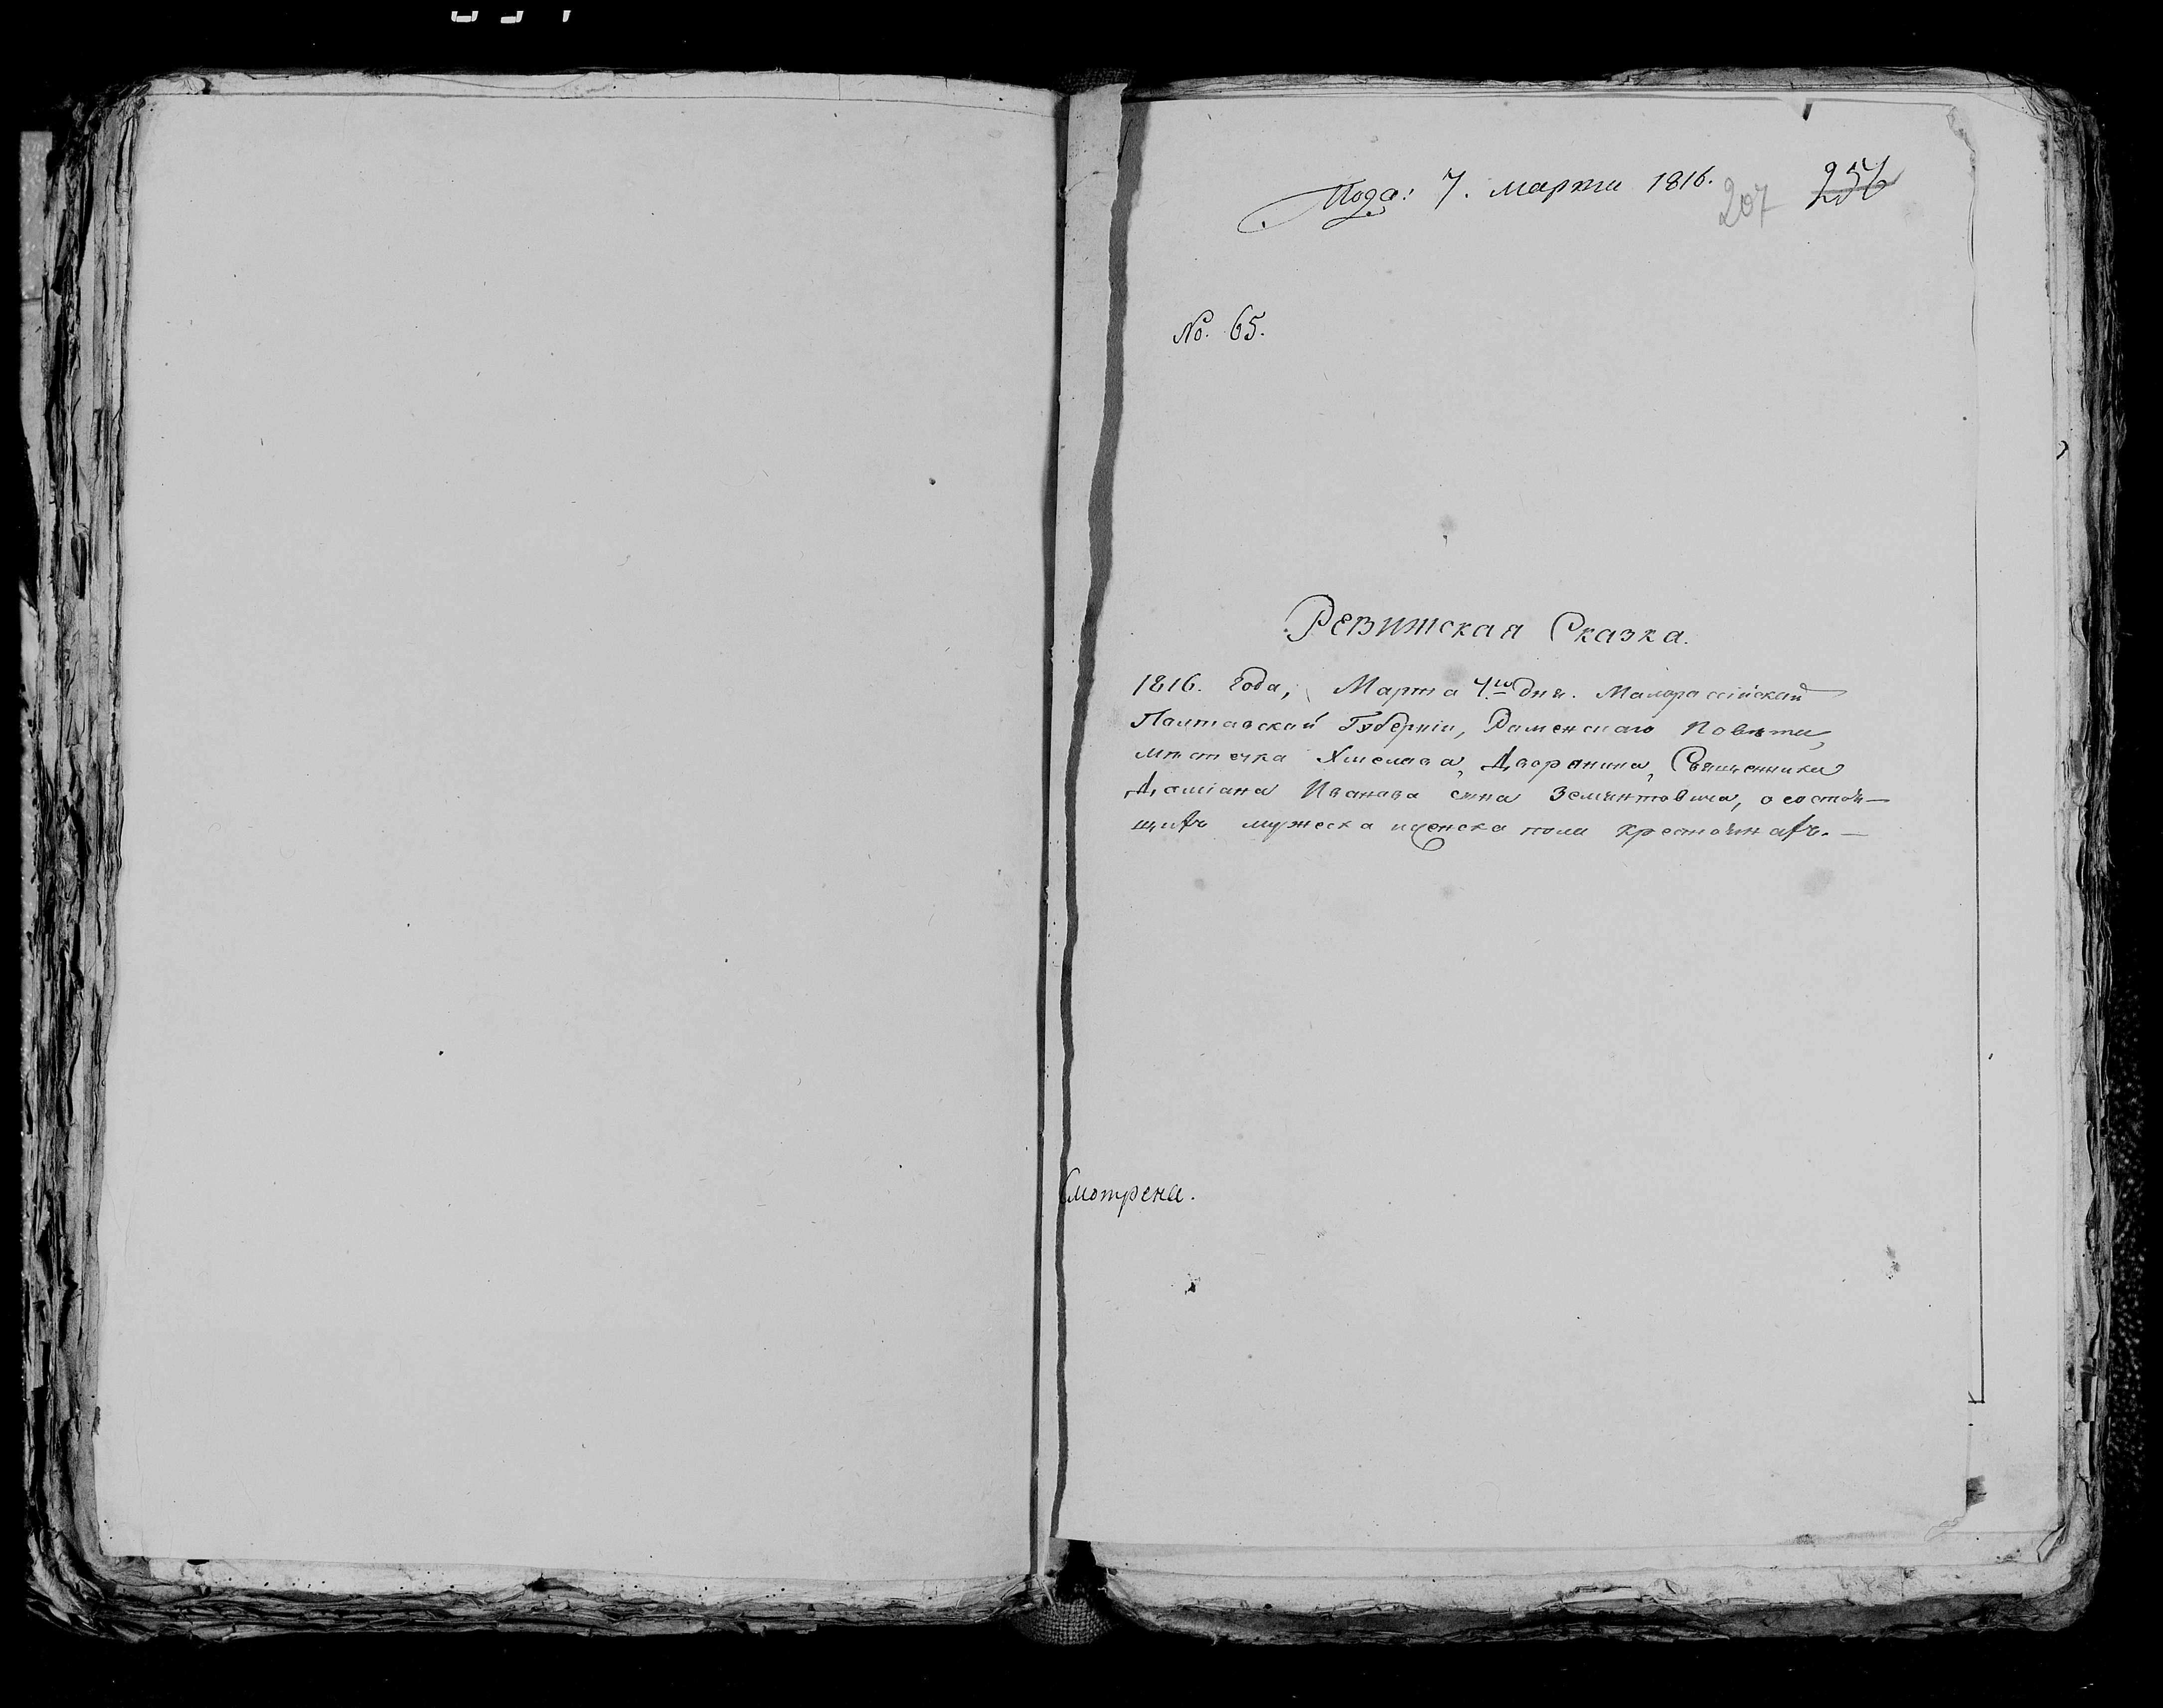 Пода: 7. марта 1816.
207 256
No. 65.
Ревижская Сказка.
1816. года, Марта 4.го дня. Малороссійской
Полтавской Губерніи, Роменскаго Повѣта,
мѣстечка Хмелова, Дворянина, Священника
Даміана Иванова сина Земянтовича, о состоя—
щихъ мужеска и женска пола крестьянахъ.—
Смотрена.